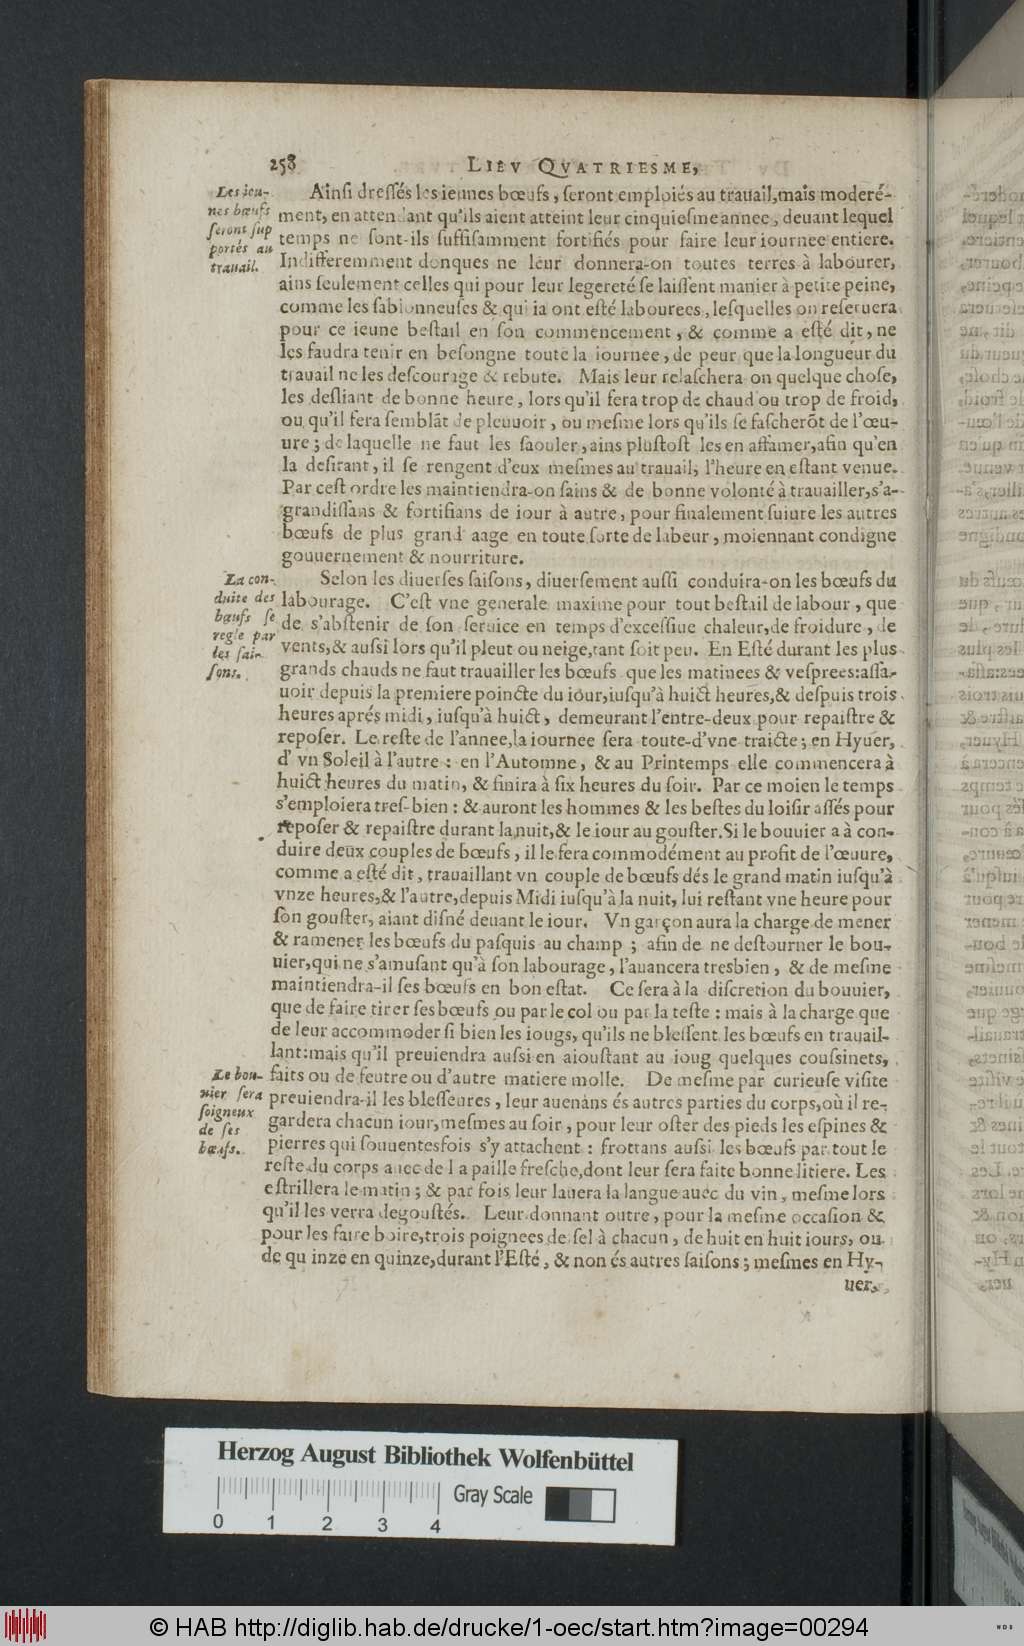 258 LIEV QVATRIESME,
Les ieu-
nes bœufs
seront sup
portés au
trauail.
Ainſi dreſſés les ieunes bœufs, ſeront emploiés au trauail, mais moderé-
ment, en attendant qu'ils aient atteint leur cinquieſme annee, deuant lequel
temps ne ſont-ils ſuffiſamment fortifiés pour faire leur iournee entiere.
Indifferemment donques ne leur donnera-on toutes terres à labourer,
ains ſeulement celles qui pour leur legereté ſe laiſſent manier à petite peine,
comme les ſablonneuſes & qui ia ont eſté labourees, leſquelles on reſeruera
pour ce ieune beſtail en ſon commencement, & comme a eſté dit, ne
les faudra tenir en beſongne toute la iournee, de peur que la longueur du
trauail ne les deſcourage & rebute. Mais leur relaſchera on quelque choſe,
les deſliant de bonne heure, lors qu'il fera trop de chaud ou trop de froid,
ou qu'il fera ſemblāt de pleuuoir, ou meſme lors qu'ils ſe faſcherōt de l'œu-
ure; de laquelle ne faut les ſaouler, ains pluſtoſt les en affamer, afin qu'en
la deſirant, il ſe rengent d'eux meſmes au trauail, l'heure en eſtant venue.
Par ceſt ordre les maintiendra-on ſains & de bonne volonté à trauailler, s'a-
grandiſſans & fortifians de iour à autre, pour finalement ſuiure les autres
bœufs de plus grand aage en toute ſorte de labeur, moiennant condigne
gouuernement & nourriture.
La con-
duite des
bœufs se
regle par
les sai-
sons.
Selon les diuerſes ſaiſons, diuerſement auſſi conduira-on les bœufs du
labourage. C'eſt vne generale maxime pour tout beſtail de labour, que
de s'abſtenir de ſon ſeruice en temps d'exceſſiue chaleur, de froidure, de
vents, & auſsi lors qu'il pleut ou neige, tant ſoit peu. En Eſté durant les plus
grands chauds ne faut trauailler les bœufs que les matinees & veſprees: aſſa-
uoir depuis la premiere poincte du iour, iuſqu'à huict heures, & deſpuis trois
heures aprés midi, iuſqu'à huict, demeurant l'entre-deux pour repaiſtre &
repoſer. Le reſte de l'annee, la iournee ſera toute-d'vne traicte; en Hyuer,
d'vn Soleil à l'autre: en l'Automne, & au Printemps elle commencera à
huict heures du matin, & finira à ſix heures du ſoir. Par ce moien le temps
s'emploiera treſ-bien: & auront les hommes & les beſtes du loiſir aſſés pour
repoſer & repaiſtre durant la nuit, & le iour au gouſter. Si le bouuier a à con-
duire deux couples de bœufs, il le fera commodément au profit de l'œuure,
comme a eſté dit, trauaillant vn couple de bœufs dés le grand matin iuſqu'à
vnze heures, & l'autre, depuis Midi iuſqu'à la nuit, lui reſtant vne heure pour
ſon gouſter, aiant diſné deuant le iour. Vn garçon aura la charge de mener
& ramener les bœufs du paſquis au champ; afin de ne deſtourner le bou-
uier, qui ne s'amuſant qu'à ſon labourage, l'auancera tresbien, & de meſme
maintiendra-il ſes bœufs en bon eſtat. Ce ſera à la diſcretion du bouuier,
que de faire tirer ſes bœufs ou par le col ou par la teſte: mais à la charge que
de leur accommoder ſi bien les iougs, qu'ils ne bleſſent les bœufs en trauail-
lant: mais qu'il preuiendra auſsi en aiouſtant au ioug quelques couſsinets,
Le bou-
uier sera
soigneux
de ses
bœufs.
faits ou de feutre ou d'autre matiere molle. De meſme par curieuſe viſite
preuiendra-il les bleſſeures, leur auenans és autres parties du corps, où il re-
gardera chacun iour, meſmes au ſoir, pour leur oſter des pieds les eſpines &
pierres qui ſouuentesfois s'y attachent: frottans auſsi les bœufs par tout le
reſte du corps auec de la paille freſche, dont leur ſera faite bonne litiere. Les
eſtrillera le matin; & par fois leur lauera la langue auec du vin, meſme lors
qu'il les verra degouſtés. Leur donnant outre, pour la meſme occaſion &
pour les faire boire, trois poignees de ſel à chacun, de huit en huit iours, ou
de qu inze en quinze, durant l'Eſté, & non és autres ſaiſons; meſmes en Hy-
uer,
Herzog August Bibliothek Wolfenbüttel
Gray Scale
0 1 2 3 4
© HAB http://diglib.hab.de/drucke/1-oec/start.htm?image=00294